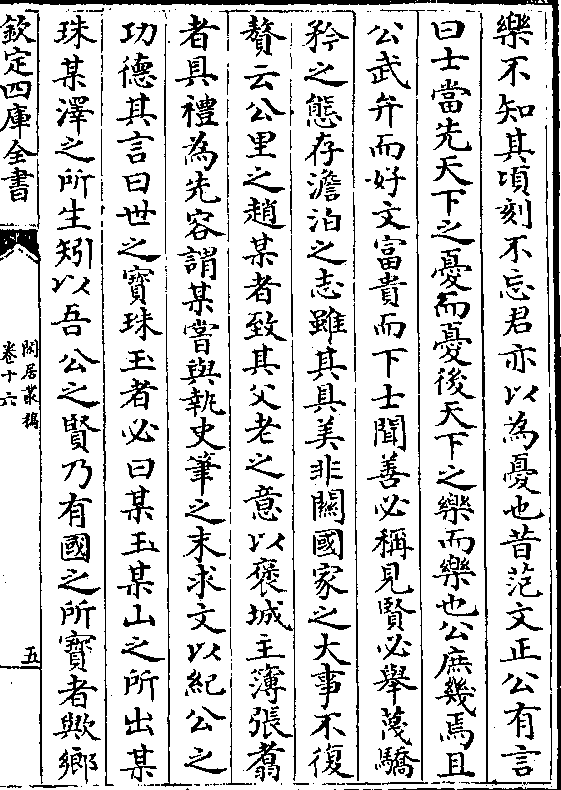 樂不知其項刻不忘君亦以為憂也昔范文正公有言
曰士當先天下之憂而憂後天下之樂而樂也公庶幾焉且
公武弁而好文富貴而下士聞善必稱見賢必舉蔑驕
矜之態存澹泊之志雖其具美非關國家之大事不復
贅云公里之趙某者致其父老之意以褒城主簿張翥
者具禮為先容謂某嘗與執史筆之末求文以紀公之
功德其言曰世之寶珠玉者必曰某玉某山之所出某
珠某澤之所生矧以吾公之賢乃有國之所寶者歟鄉
欽定四庫全書
閑居叢稿
卷十六
五